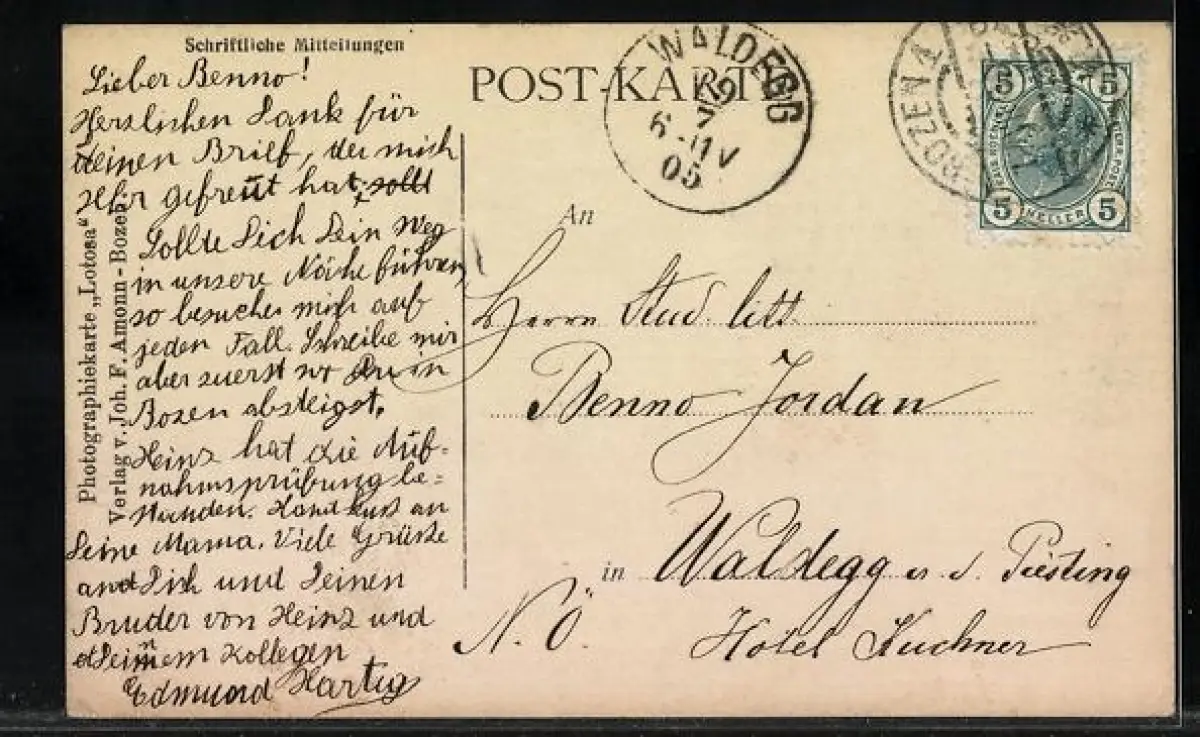 Schriftliche Mitteilungen
Lieber Benno!
Herzlichen Dank für
deinen Brief, der mich
sehr gefreut hat, sollt
Sollte Dich Dein Weg
in unsere Nähe führen,
so besuche mich auf
jeden Fall. Schreibe mir
aber zuerst wo Du in
Bozen absteigst.
Heinz hat die Auf-
nahmsprüfung be-
standen. Handkuss an
Deine Mama. Viele Grüsse
and Dich und Deinen
Bruder von Heinz und
Deinem Kollegen
Edmund Hartig
Photographiekarte „Lotosa“
Verlag v. Joh. F. Amonn - Bozen.
POST-KARTE
WALDEGG
19 7
6-11 V
05
BOZEN
5 5
5 HELLER 5
An
Herrn Stud. litt.
Benno Jordan
in Waldegg a. d. Piesting
N. Ö. Hotel Kuchner